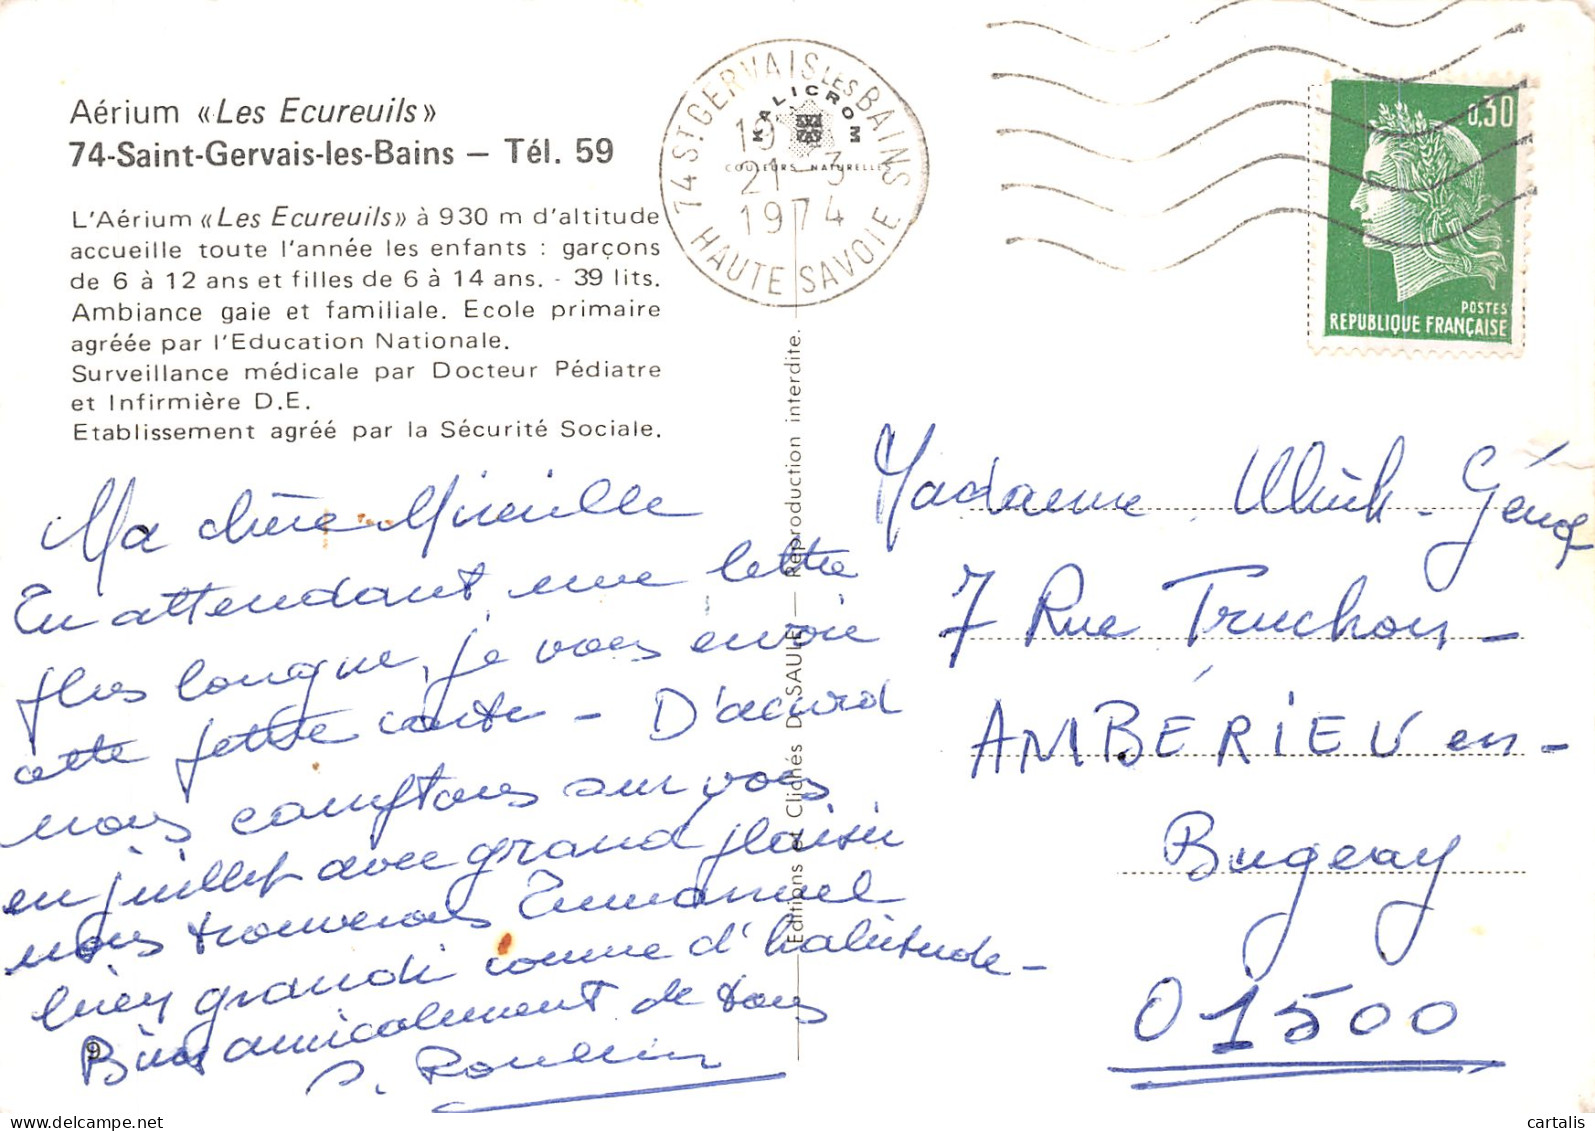 Aérium «Les Ecureuils»
74-Saint-Gervais-les-Bains — Tél. 59
L'Aérium «Les Ecureuils» à 930 m d'altitude
accueille toute l'année les enfants : garçons
de 6 à 12 ans et filles de 6 à 14 ans. - 39 lits.
Ambiance gaie et familiale. Ecole primaire
agréée par l'Education Nationale.
Surveillance médicale par Docteur Pédiatre
et Infirmière D.E.
Etablissement agréé par la Sécurité Sociale.
74 ST GERVAIS LES BAINS
KALICROM
COULEURS NATURELLES
19
21 - 3
1974
HAUTE SAVOIE
0,30
POSTES
REPUBLIQUE FRANÇAISE
Editions et Clichés D. SAULE — Reproduction interdite.
Ma chère Mireille
En attendant une lettre
plus longue, je vous envoie
cette petite carte - D'accord
nous comptons sur vous
en juillet avec grand plaisir
nous trouverons Emmanuel
bien grandi comme d'habitude -
Bien amicalement de tous
9
Madame Ulrich-
7 Rue Truchon -
AMBÉRIEU en -
Bugeay
01500
delcampe.net
cartalis